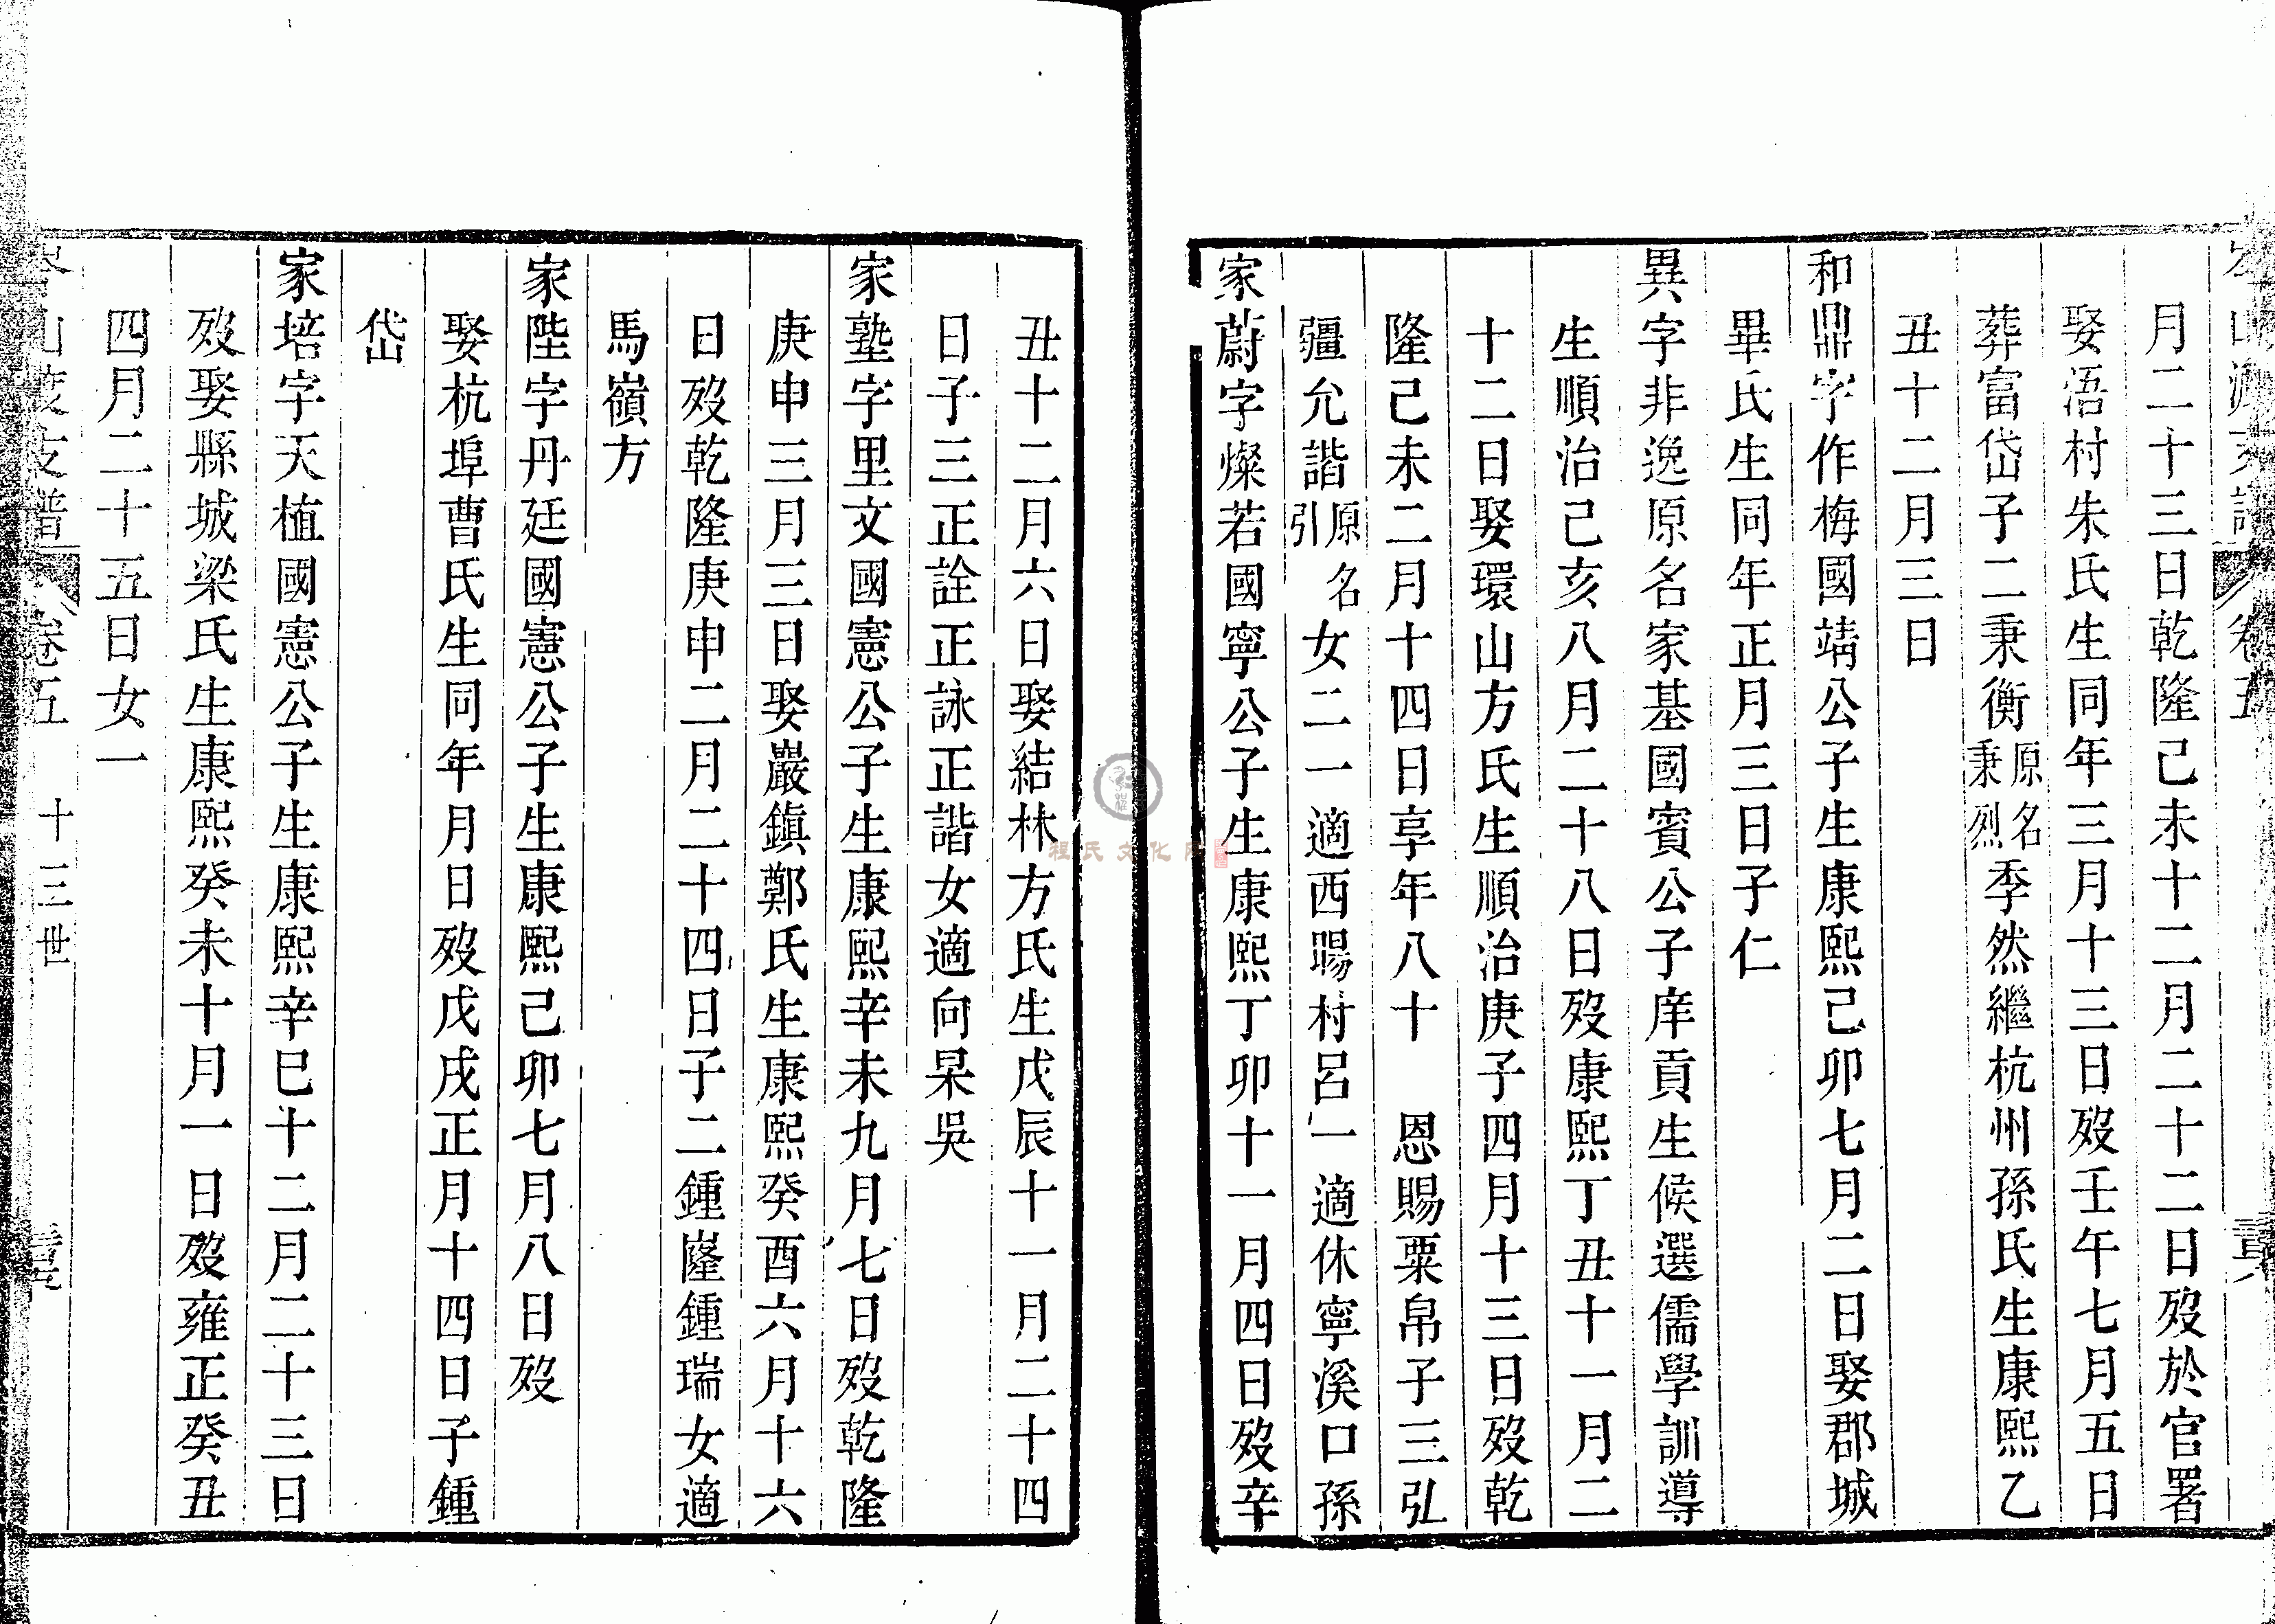 月二十三日乾隆己未十二月二十二日歿於官署
娶浯村朱氏生同年三月十三日歿壬午七月五日
葬富岱子二秉衡原名秉烈季然繼杭州孫氏生康熙乙
丑十二月三日
和鼎字作梅國靖公子生康熙己卯七月二日娶郡城
畢氏生同年正月三日子仁
異字非逸原名家基國賓公子庠貢生候選儒學訓導
生順治己亥八月二十八日歿康熙丁丑十一月二
十二日娶環山方氏生順治庚子四月十三日歿乾
隆己未二月十四日享年八十 恩賜粟帛子三弘
疆允諧原名引女二一適西賜村呂一適休寧溪口孫
家蔚字燦若國寧公子生康熙丁卯十一月四日歿辛
丑十二月六日娶結林方氏生戊辰十一月二十四
日子三正詮正詠正諧女適向杲吳
家塾字里文國憲公子生康熙辛未九月七日歿乾隆
庚申三月三日娶巖鎮鄭氏生康熙癸酉六月十六
日歿乾隆庚申二月二十四日子二鍾嶐鍾瑞女適
馬嶺方
家陛字丹廷國憲公子生康熙己卯七月八日歿
娶杭埠曹氏生同年月日歿戊戌正月十四日子鍾
岱
家培字天植國憲公子生康熙辛巳十二月二十三日
歿娶縣城梁氏生康熙癸未十月一日歿雍正癸丑
四月二十五日女一
卷五 十三世
程氏文化网